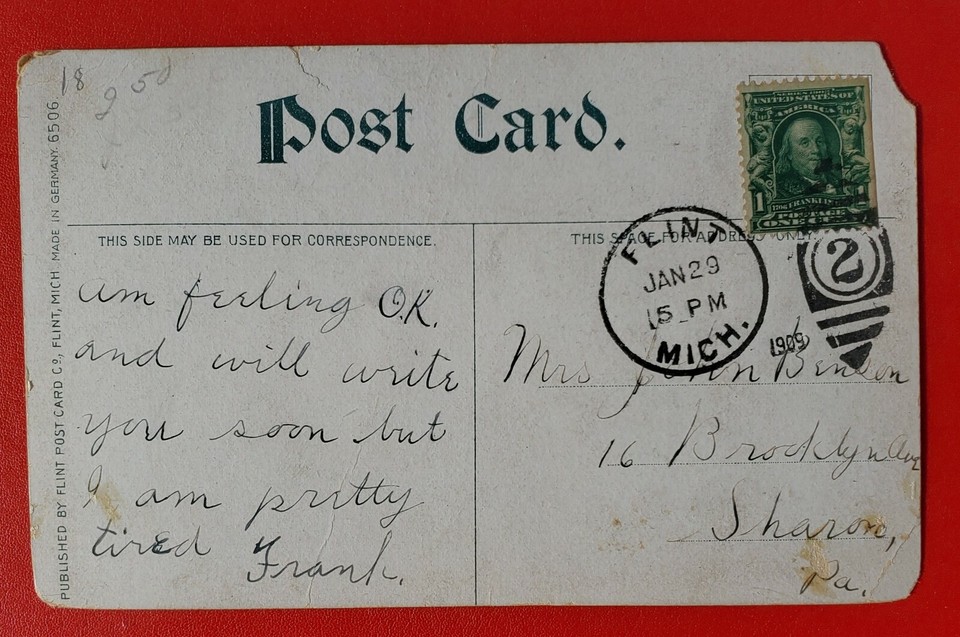 18
250
Post Card.
SERIES 1902
UNITED STATES OF
AMERICA
1 1706 FRANKLIN
POSTAGE
ONE
THIS SIDE MAY BE USED FOR CORRESPONDENCE.
THIS SPACE FOR ADDRESS ONLY.
FLINT
JAN 29
5 PM
1909
MICH.
2
am feeling O.K.
and will write
you soon but
I am pretty
tired
Frank.
Mrs John Benson
16 Brooklyn Ave
Sharon,
Pa.
PUBLISHED BY FLINT POST CARD Co., FLINT, MICH. MADE IN GERMANY. 6506